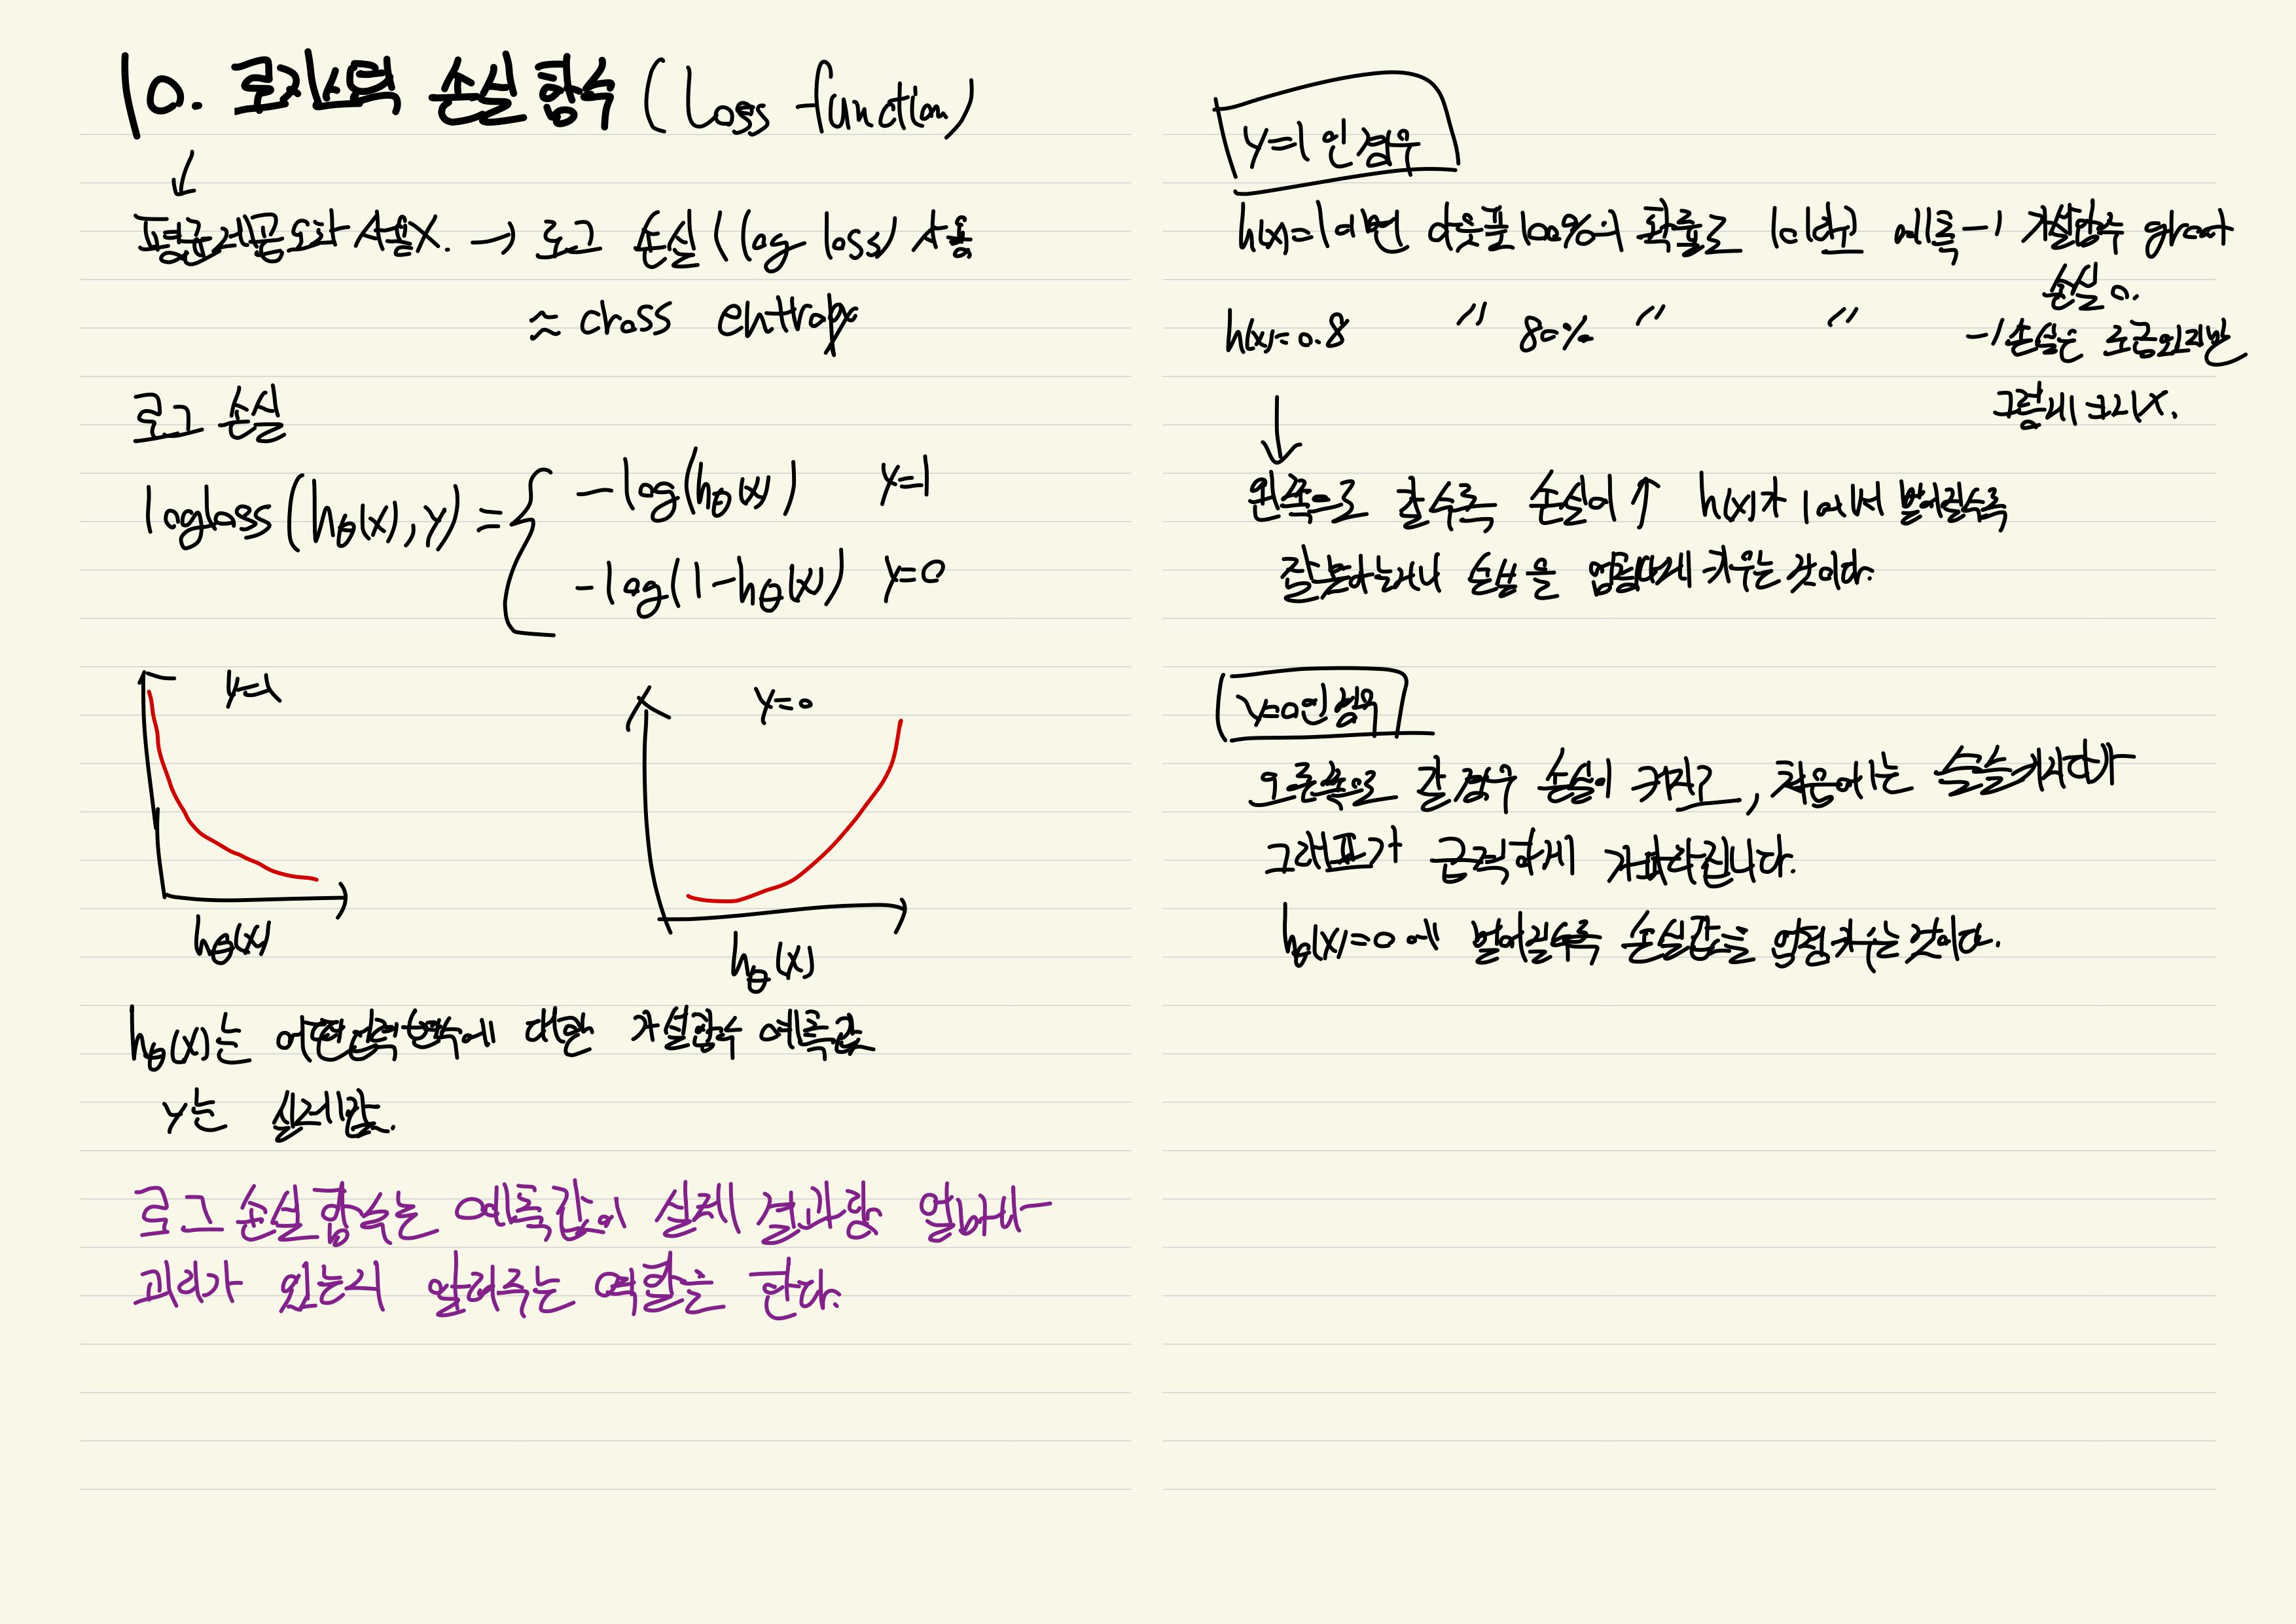 10. 로지스틱 손실 함수 (Loss function)
↓
평균제곱오차 사용X. → 로그 손실 (log loss) 사용
≈ cross entropy
로그 손실
logloss(hθ(x), y) = { -log(hθ(x)) y=1
-log(1-hθ(x)) y=0
y=1
hθ(x)
y=0
hθ(x)
hθ(x)는 어떤 입력변수에 대한 가설함수 예측값
y는 실제값.
로그 손실 함수는 예측값이 실제 결과랑 얼마나
괴리가 있는지 알려주는 역할을 한다.
y=1인 경우
h(x)=1이면 아웃풋 100%의 확률로 1이라고 예측 → 가설함수 great
손실 0.
h(x)=0.8 〃 80% 〃 〃 → 손실은 조금 있지만
그렇게 크지X.
↓
왼쪽으로 갈수록 손실이 ↑ h(x)가 1에서 멀어질수록
잘 못하는거니 손실을 엄청나게 키우는 것이다.
y=0인 경우
오른쪽으로 갈 경우 손실이 커지고, 처음에는 슬슬 커지다가
그래프가 급격하게 가파라집니다.
hθ(x)=0에 멀어질수록 손실값을 엄청 키우는것이다.